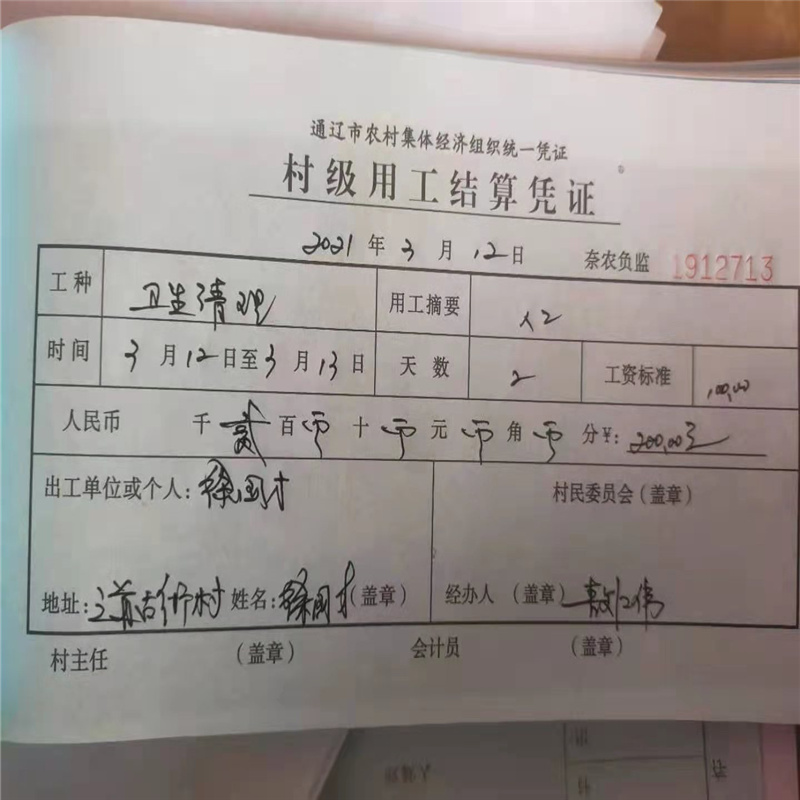 通辽市农村集体经济组织统一凭证
村级用工结算凭证
2021 年 3 月 12 日 奈农负监 1912713
工种 卫生清理 用工摘要 人2
时间 3 月 12 日至 3 月 13 日 天数 2 工资标准 100.00
人民币 千 贰 百 零 十 零 元 零 角 零 分 ¥: 200.00元
出工单位或个人: 徐国才 村民委员会(盖章)
地址: 村 姓名: 徐国才 (盖章) 经办人 (盖章) 敖仁伟
村主任 (盖章) 会计员 (盖章)